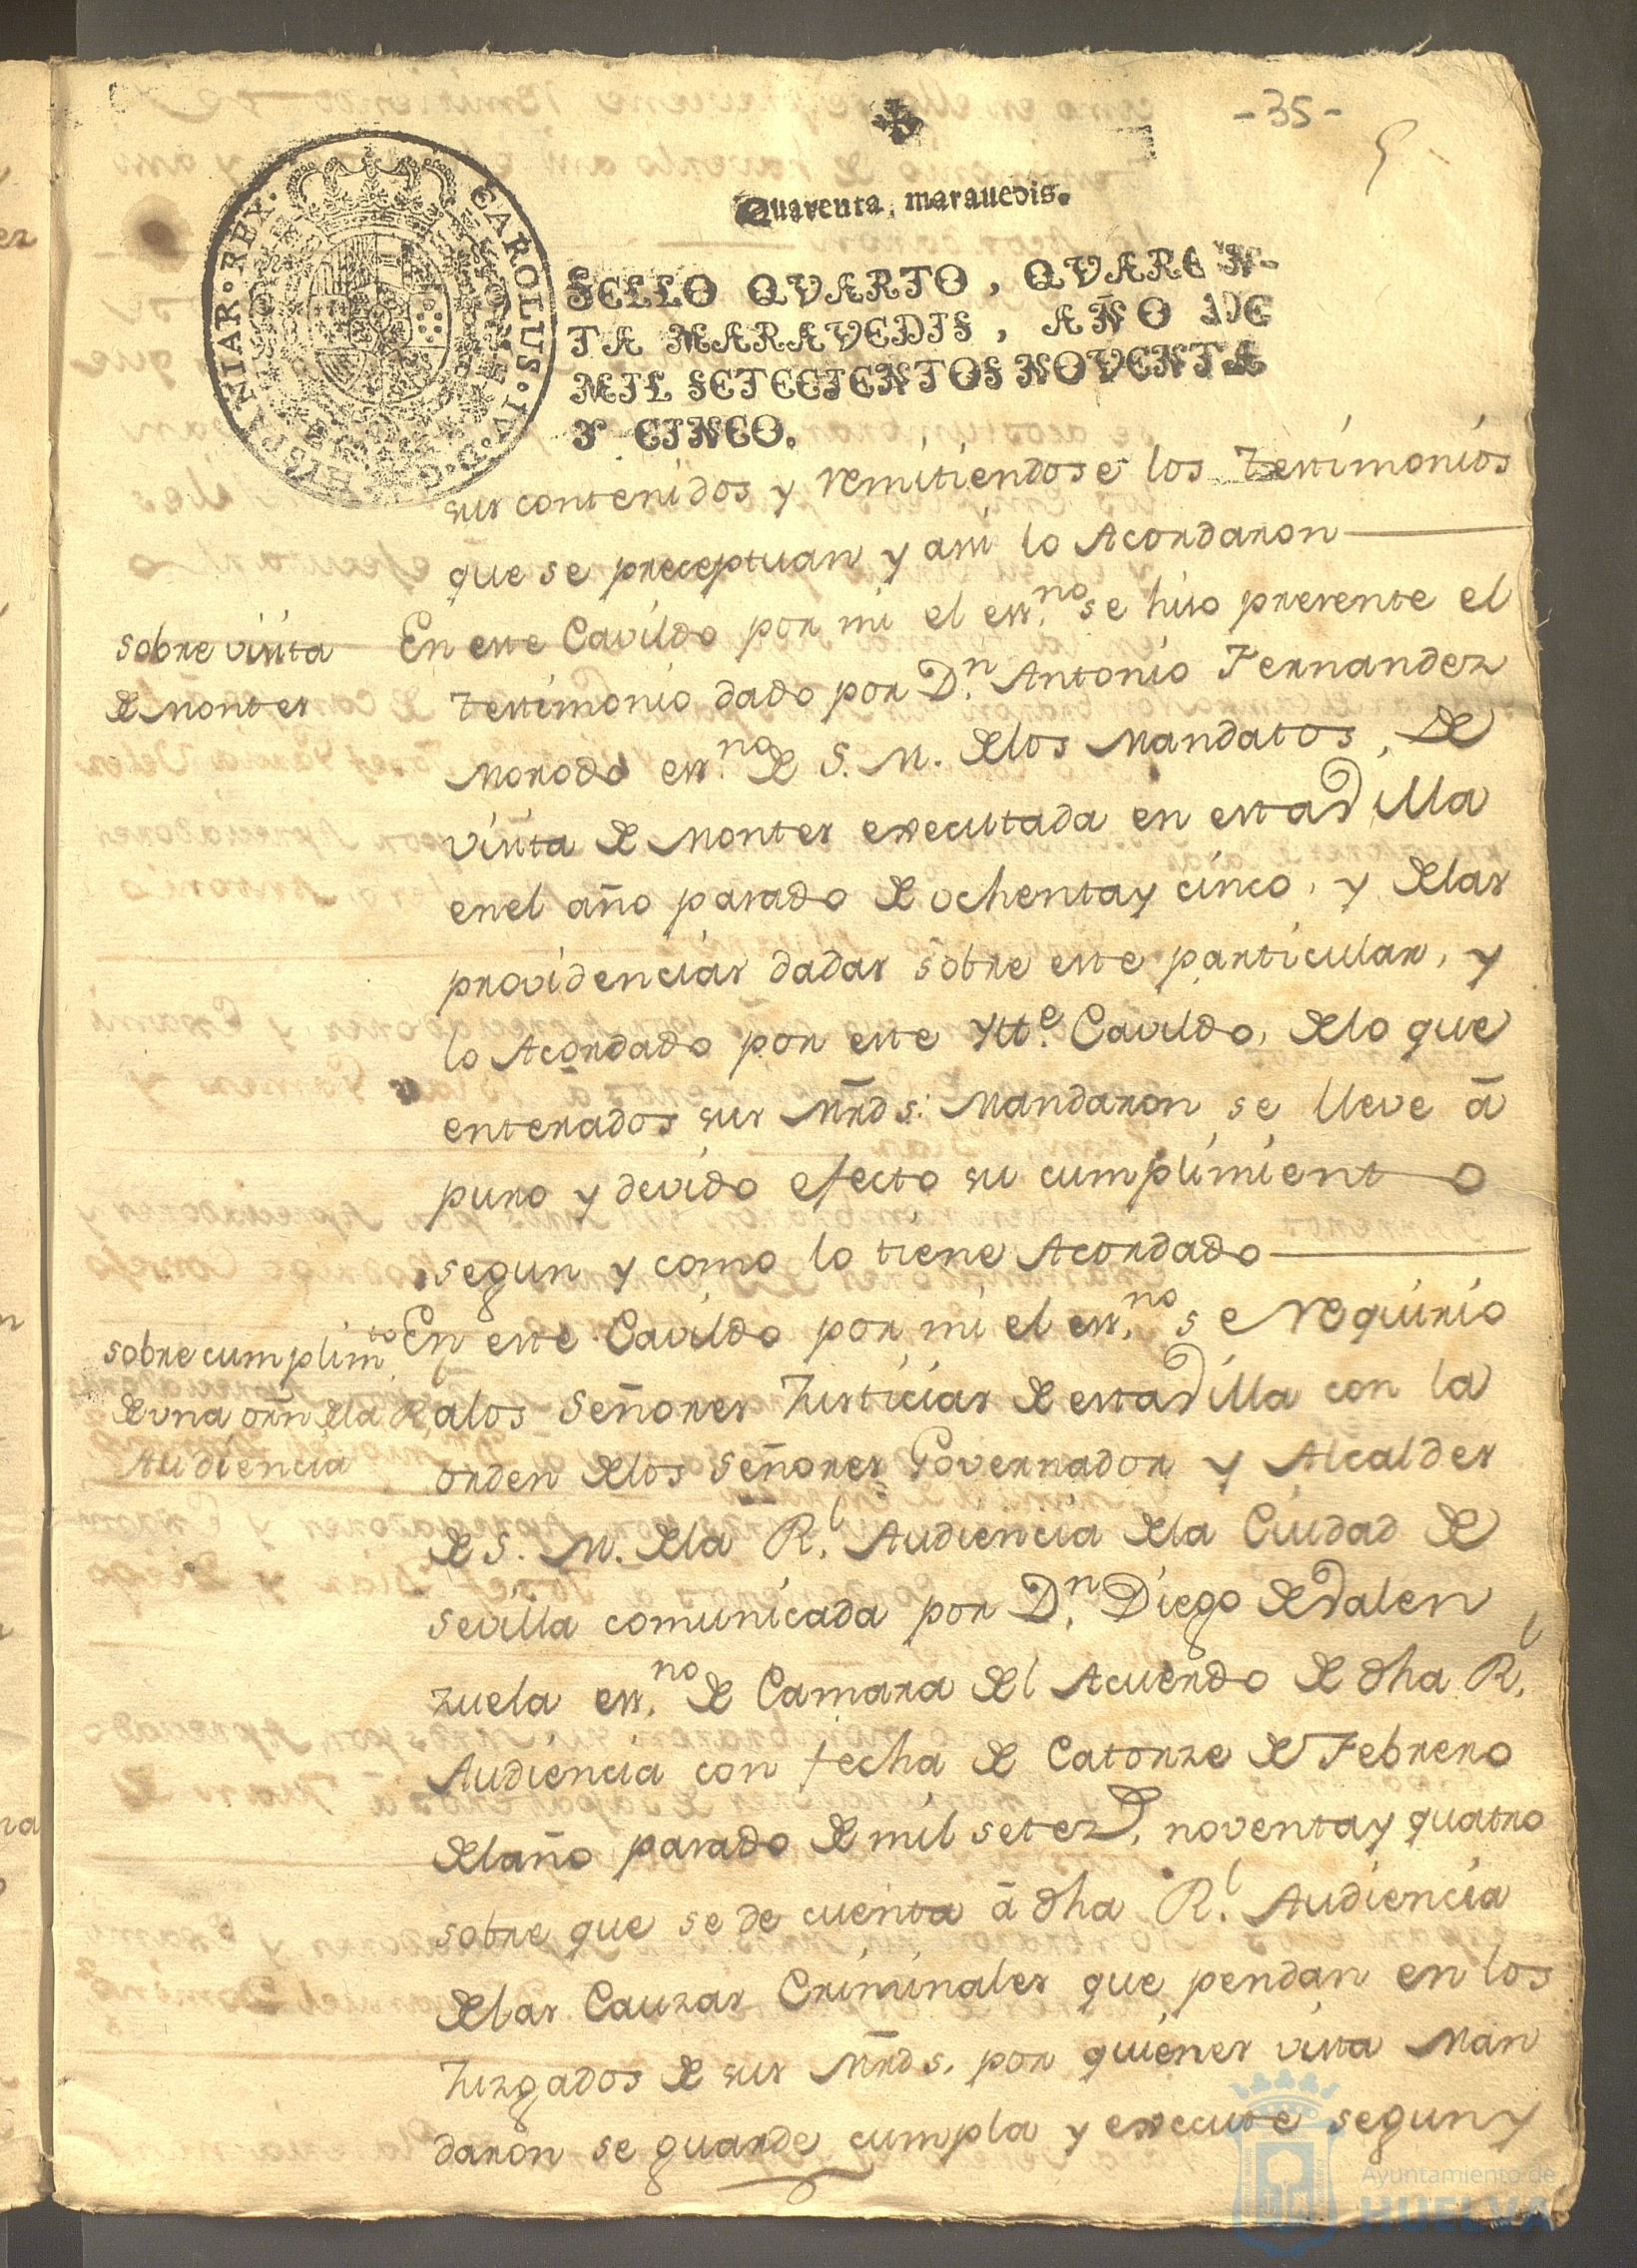 -35-
Quarenta, marauedis.
CAROLUS. IV. D. G. HISPANIAR. REX.
SELLO QVARTO, QVAREN-
TA MARAVEDIS, AÑO DE
MIL SETECIENTOS NOVENTA
Y CINCO.
sus contenidos y remitiendose los testimonios
que se preceptuan y asi lo Acordaron
sobre visita
de Montes
En este Cavildo por mi el ess.no se hiso presente el
testimonio dado por D.n Antonio Fernandez
Morodo ess.no de S. M. delos Mandatos, de
visita de Montes executada en esta Villa
enel año pasado de ochenta y cinco, y delas
providencias dadas sobre este particular, y
lo Acordado por este Ytt.e Cavildo, delo que
enterados sus Mrds. Mandaron se lleve â
puro y devido efecto su cumplimiento
segun y como lo tiene Acordado
sobre cumplim.to
de una orn dela R.l
Audiencia
En este Cavildo por mi el ess.no se requirio
alos Señores Justicias de esta Villa con la
orden delos Señores Governador y Alcaldes
de S. M. dela R.l Audiencia dela Ciudad de
Sevilla comunicada por D.n Diego de Valen
zuela ess.no de Camara del Acuerdo de dha R.l
Audiencia con fecha de Catorze de Febrero
del año pasado de mil setez.s noventa y quatro
sobre que se de cuenta â dha R.l Audiencia
delas Cauzas Criminales que pendan en los
Juzgados de sus Mrds. por quienes vista Man
daron se guarde cumpla y execute segun y
Ayuntamiento de
HUELVA